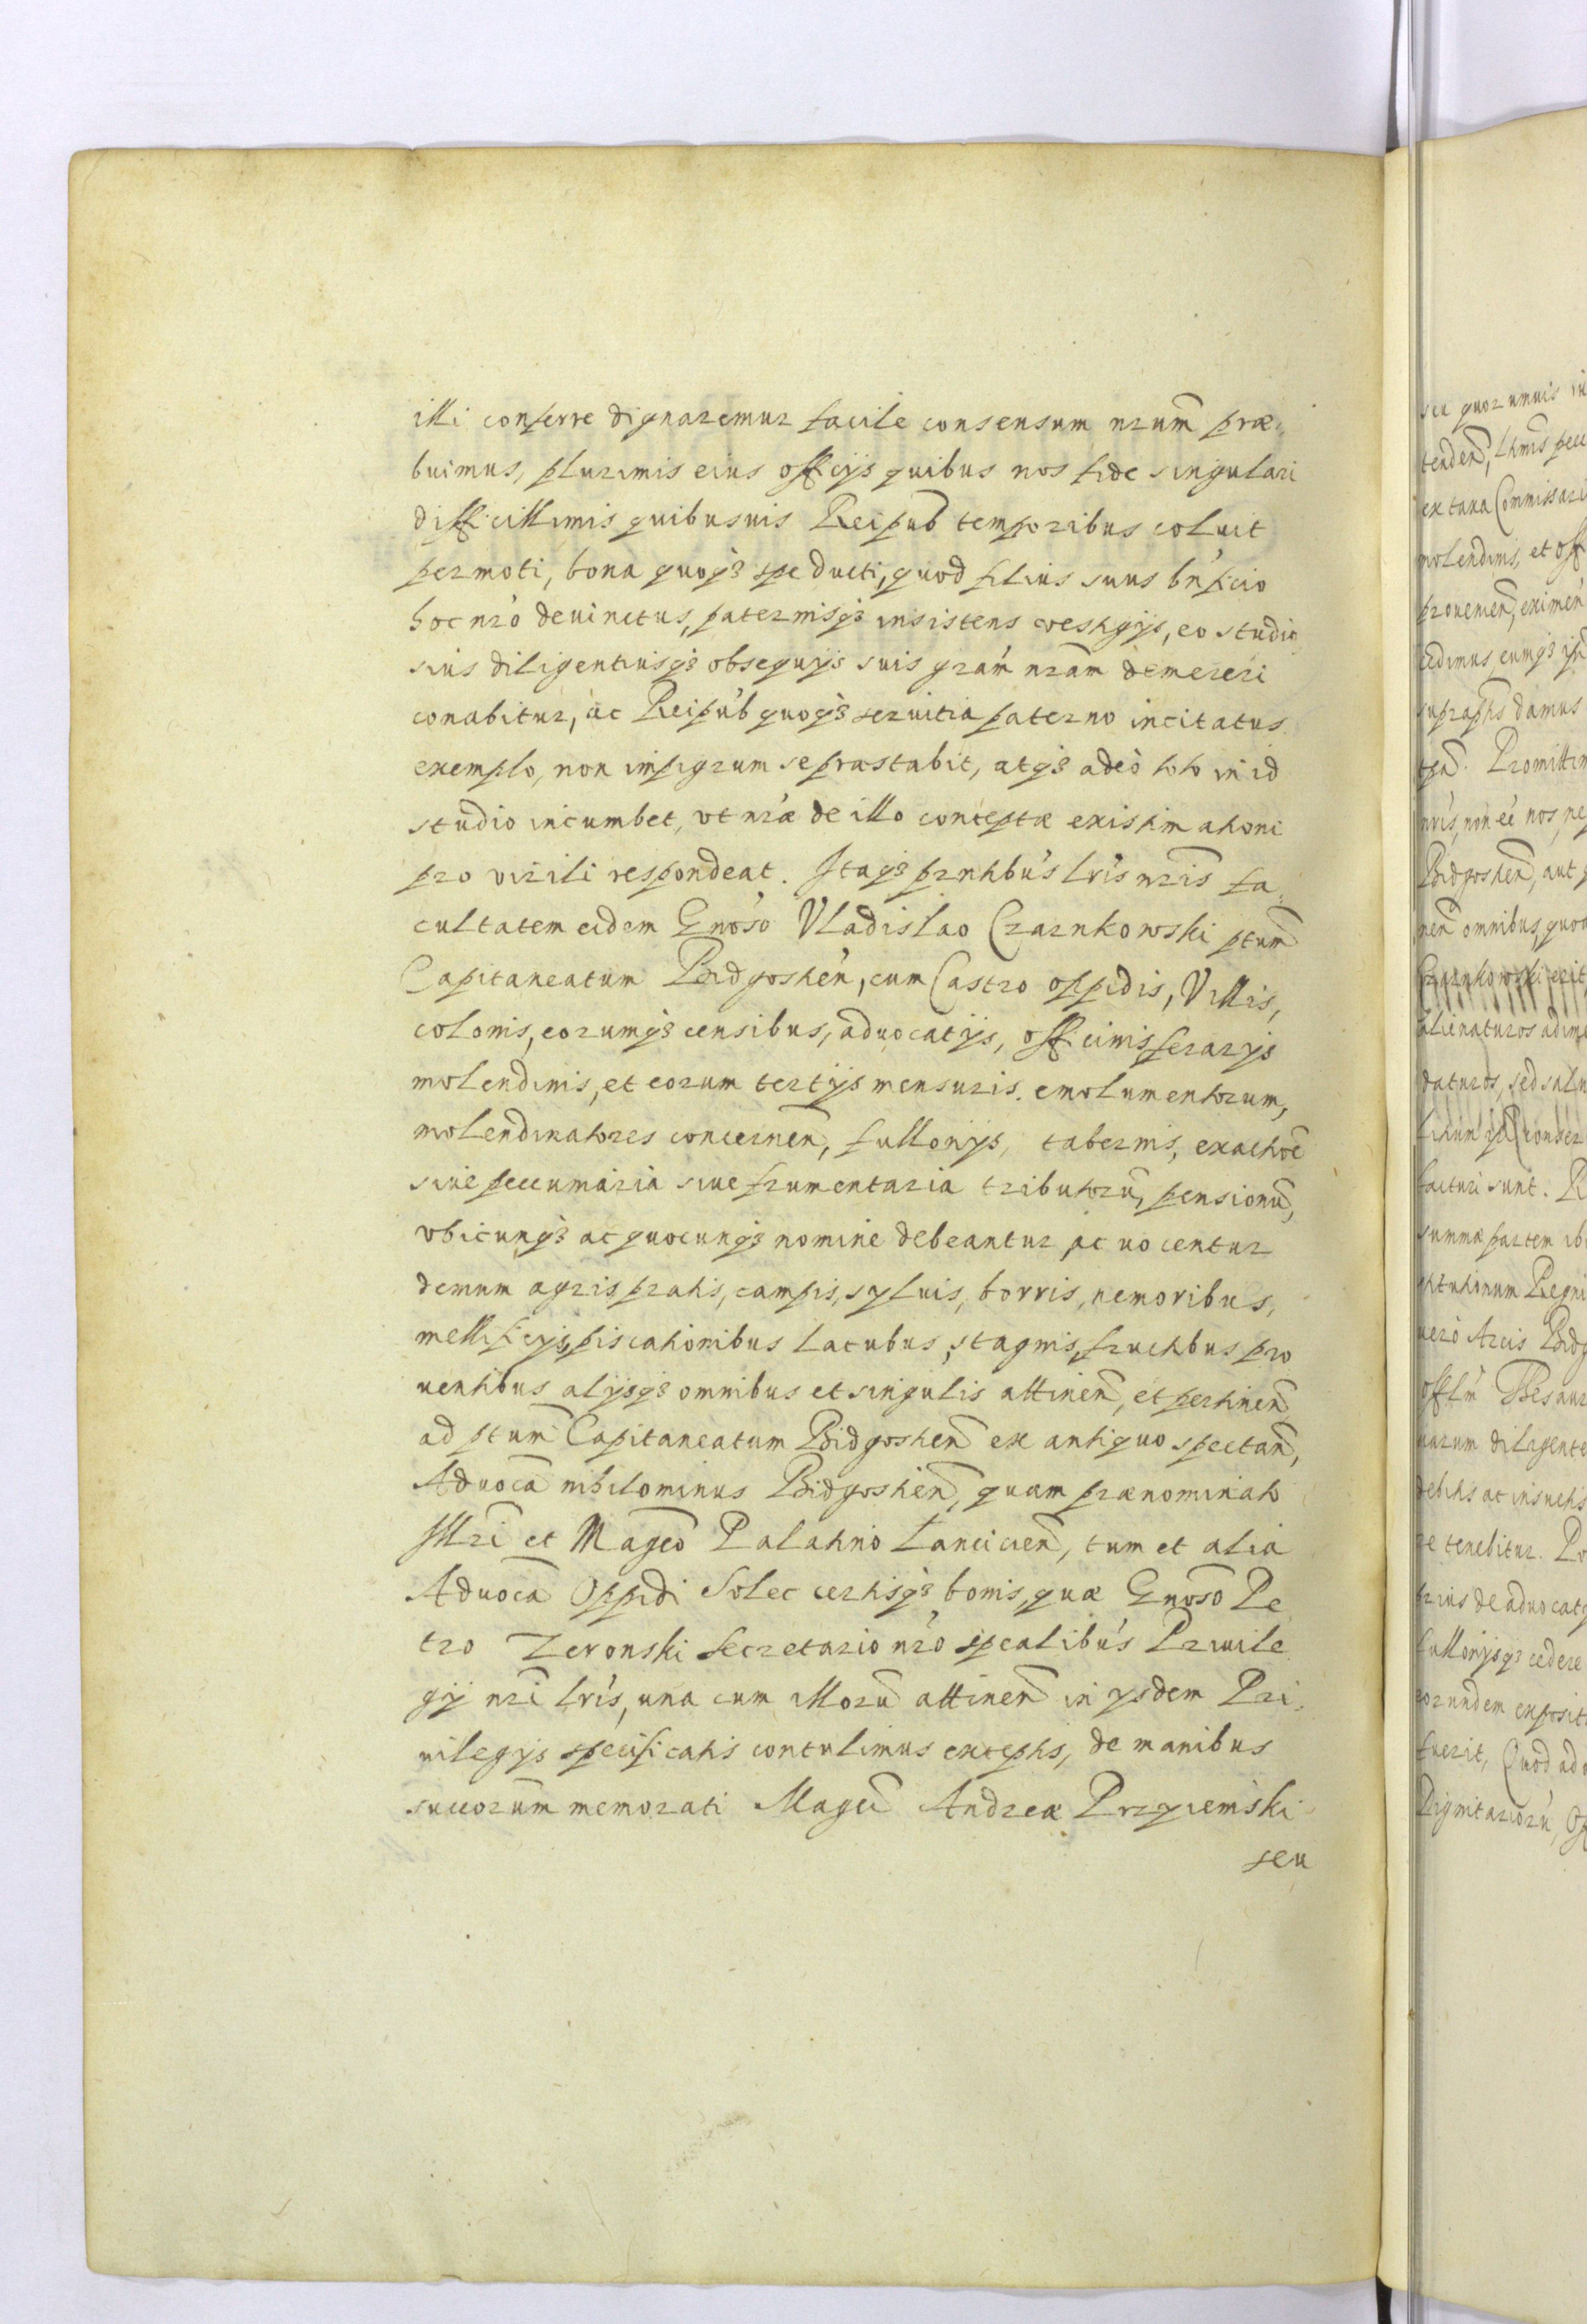 illi conferre dignaremur facile consensum nrum̄ præ-
buimus, plurimis eius officijs quibus nos fide singulari
difficillimis quibusuis Reipub̄ temporibus coluit
permoti, bona quoqȝ spe ducti, quod filius suus bn̄ficio
hoc nr̄o deuinctus, paternisqȝ insistens vestigijs, eo studio
sius diligentiusqȝ obsequijs suis grām nrām demereri
conabitur, ac Reipub̄ quoqȝ seruitia paterno incitatus
exemplo, non impigrum se præstabit, atqȝ adeò toto in id
studio incumbet, vt nr̄æ de illo conceptæ existimationi
pro virili respondeat. Itaqȝ prntibūs lrīs nrīs fa-
cultatem eidem Gnōso Vladislao Czarnkowski ptum̄
Capitaneatum Bidgostien̄, cum Castro oppidis, Villis,
colonis, eorumqȝ censibus, aduocatijs, officinis ferarijs
molendinis, et eorum tertijs mensuris emolumentorum,
molendinatores concernen̄, fullonijs, tabernis, exactiōe
siue pecuniaria siue frumentaria tributorū, pensionū,
vbicunqȝ ac quocunqȝ nomine debeantur ac uocentur
demum agris, pratis, campis, syluis, borris, nemoribus,
mellificijs, piscationibus lacubus, stagnis, fructibus pro
uentibus alijsqȝ omnibus et singulis attinen̄, et pertinen̄
ad ptum̄ Capitaneatum Bidgostien̄ ex antiquo spectan̄,
Aduocā nihilominus Bidgostien̄, quam prænominato
Illri et Magco Palatino Lancicien̄, tum et alia
Aduocā Oppidi Solec certisqȝ bonis, quæ Gnōso Pe
tro Zeronski Secretario nr̄o spcalibūs Priuile
gij nri lrīs, una cum illorū attinen̄ in ijsdem Pri-
uilegijs specificatis contulimus exceptis, de manibus
succorum̄ memorati Magci Andreæ Przyiemski
seu